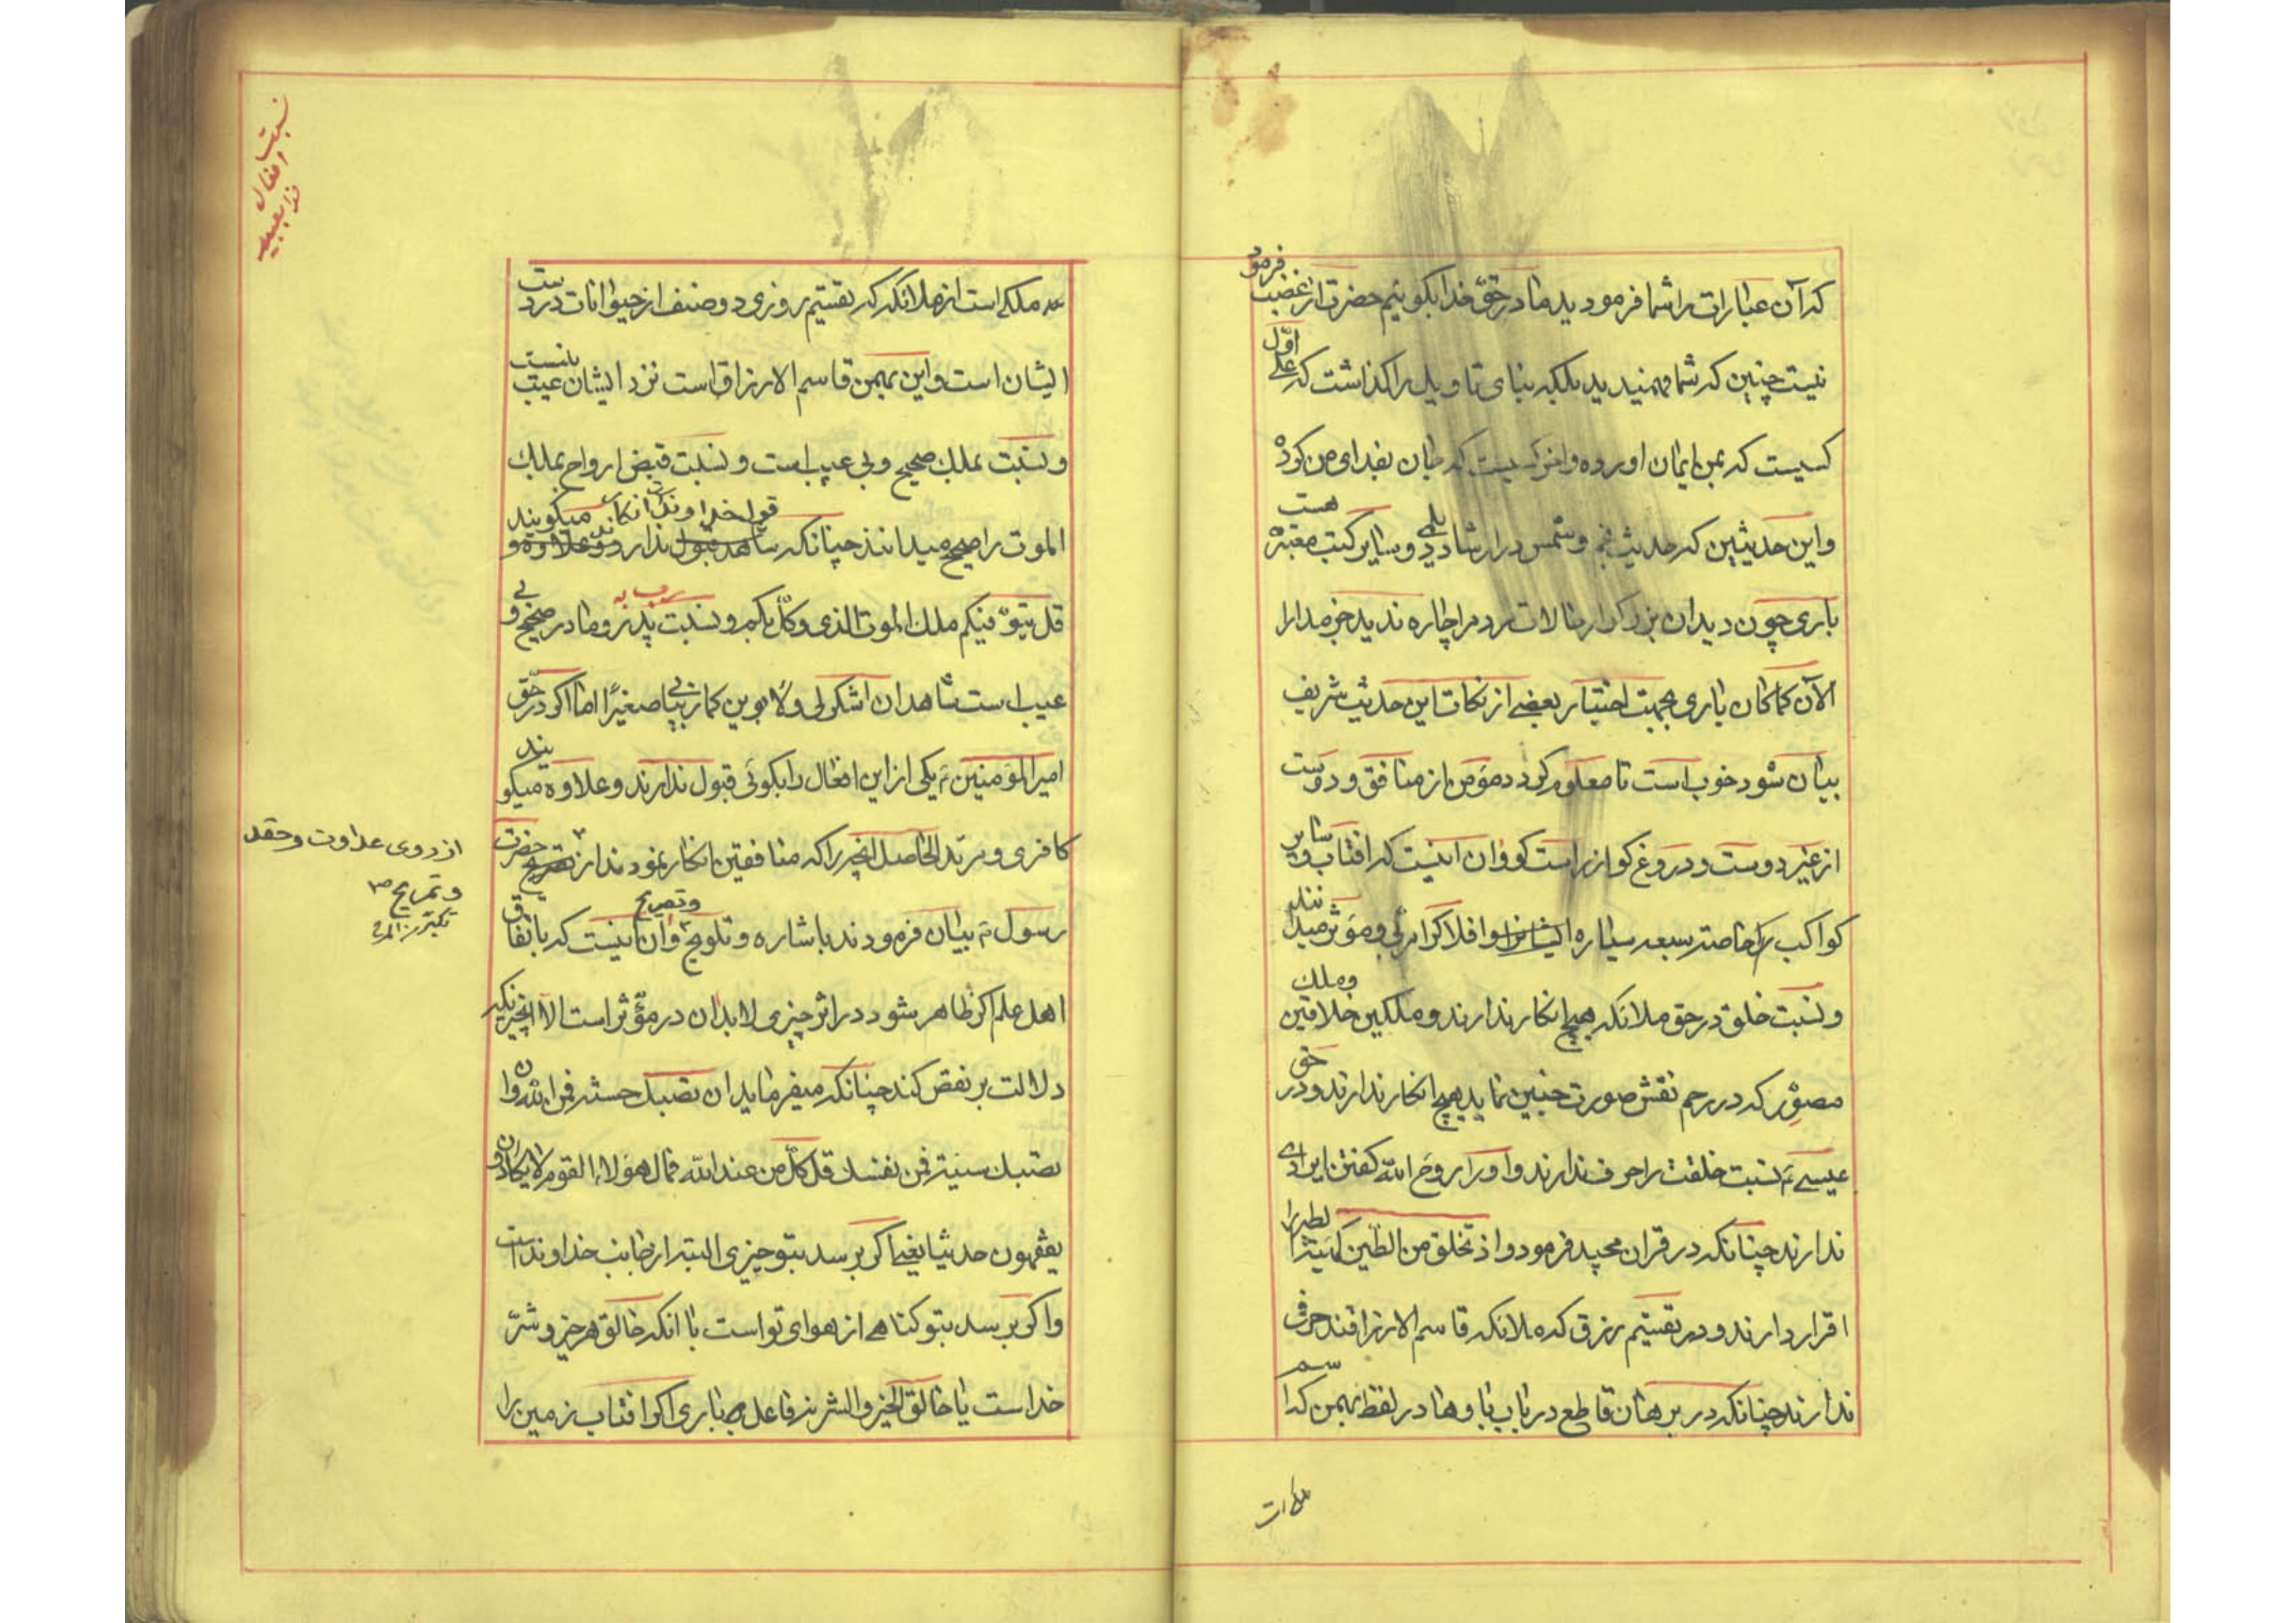 که آن عبارات را شما فرمودید ما در حق خدا بگوئیم حضرت از غضب فرمود
نیست چنین که شما فهمیدید بلکه بنای تاویل را گذاشت که علی اول
کسیست که بمن ایمان اورده واخر کسیست که بعد ای من کرد
واین حدیثین که حدیث نجم وشمس در ارشاد دیلمی وسایر کتب معتبره هست
باری چون دید ان بزرگوار حالات مردم را چاره ندید جز مدارا
الآن کماکان باری بجهت اختیار بعضی از نکات این حدیث شریف
بیان شود خوب است تا معلوم گردد مؤمن از منافق ودوست
از غیر دوست ودروغ گو از راست گو وان اینست که افتاب وسایر
کواکب را خاصه سبعه سیاره ایشانرا وافلاک را مربی ومؤثر میدانند
ونسبت خلق در حق ملائکه هیچ انکار ندارند وملکین خلاقین وملک
مصور که در رحم نقش صورت جنین نماید هیچ انکار ندارند ودر حق
عیسی ع نسبت خلقت را حرف ندارند واورا روح الله گفتن ایرادی
ندارند چنانکه در قران مجید فرمود واذ تخلق من الطین کهیئة الطیر را
اقرار دارند ودر تقسیم رزق که ملائکه قاسم الارزاقند حرفی
ندارند چنانکه در برهان قاطع در باب با وها در لفظ بهمن که اسم
ملک است
نسبت افعال
ملکی است از ملائکه که تقسیم روزی دو صنف از حیوانات در دست
ایشان است واین بهمن قاسم الارزاق است نزد ایشان عیب نیست
ونسبت بملک صحیح وبی عیب است ونسبت قبض ارواح بملک
الموت را صحیح میدانند چنانکه شاهد قول خداوند است میگویند
قل یتوفیکم ملک الموت الذی وکل بکم ونسبت پدر ومادر صحیح وبی
عیب است شاهد ان اشکر لی ولابوین کما ربیا صغیرا اما اگر در حق
امیر المؤمنین ع یکی از این افعال را بگوئی قبول ندارند وعلاوه میگویند
کافری ومرتد الحاصل انچه را که منافقین انکار نمودند از حضرت
از روی عداوت وحقد
رسول ع بیان فرمودند باشاره وتلویح وتصریح وان اینست که باتفاق
اهل علم اگر ظاهر شود در اثر چیزی لابد ان در مؤثر است الا انچیزیکه
دلالت بر نقص کند چنانکه میفرماید ان تصبک حسنة فمن الله وان
تصبک سیئة فمن نفسک قل کل من عند الله فمال هؤلاء القوم لا یکادون
یفقهون حدیثا یعنی اگر برسد بتو چیزی البته از جانب خداوند است
واگر برسد بتو گناهی از هوای تو است با انکه خالق هر خیر وشر
خدا است یا خالق الخیر والشر نه فاعل باری اگر افتاب زمین را